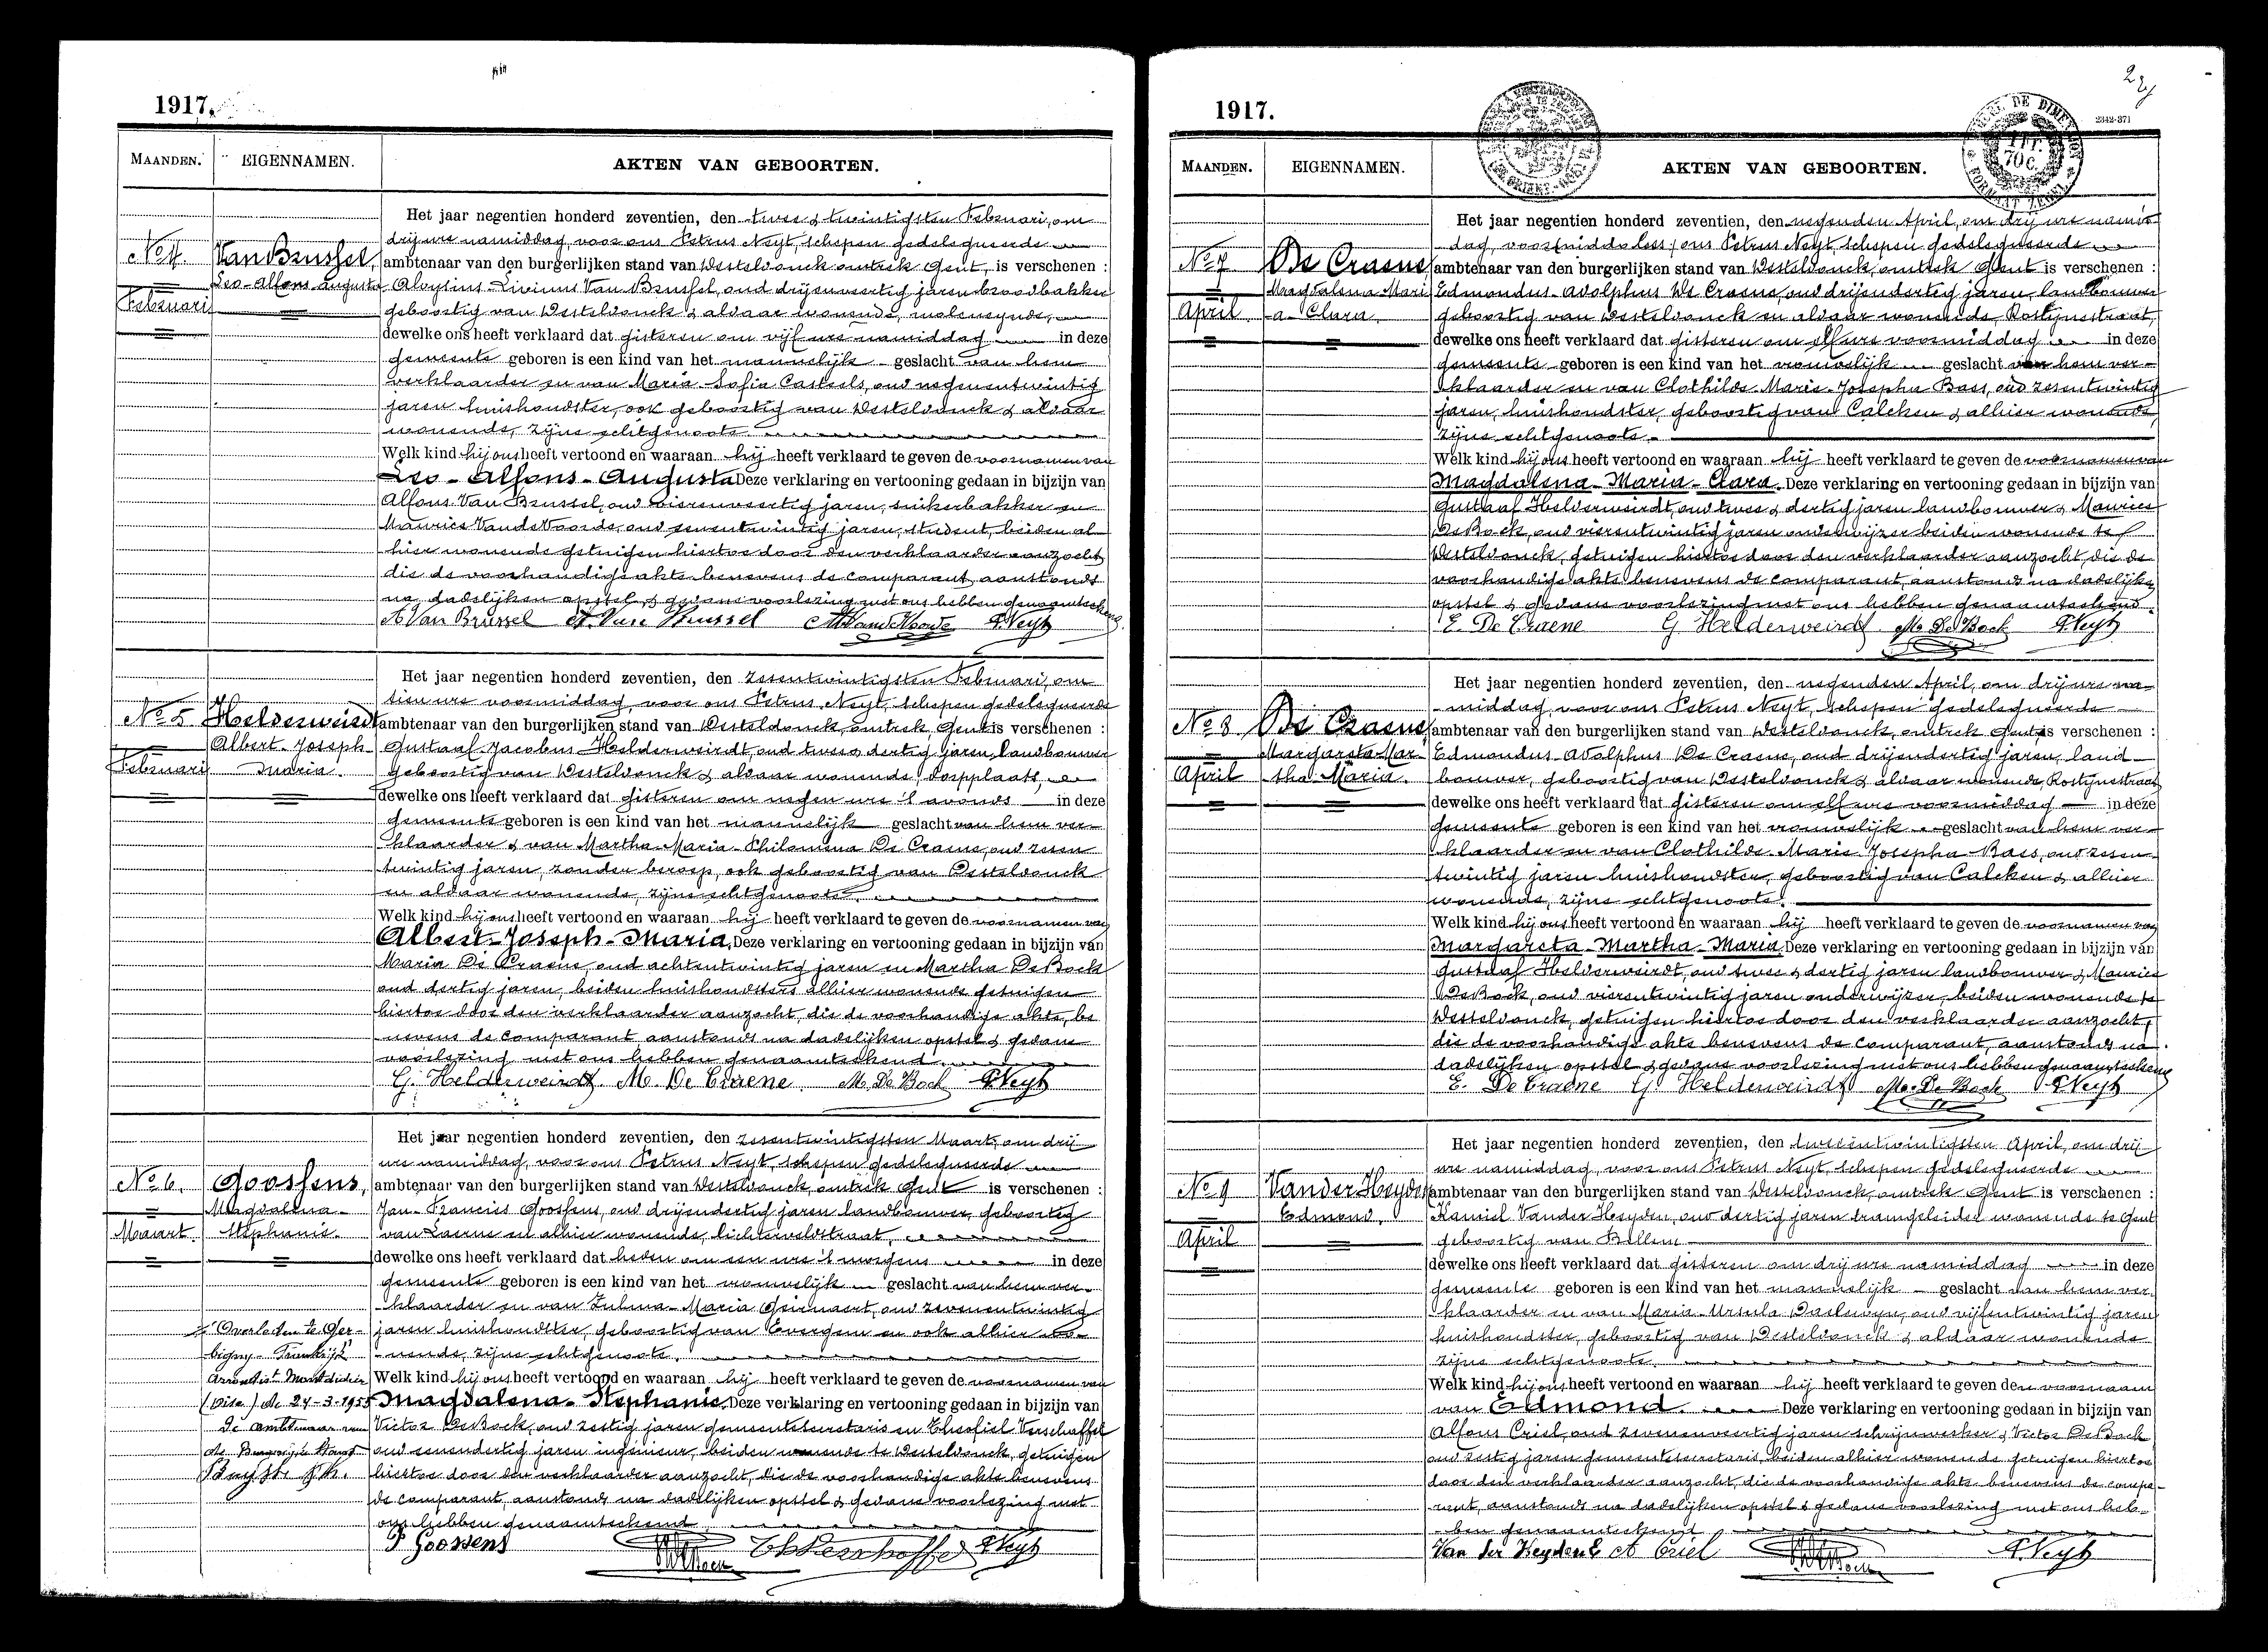 1917.
MAANDEN. EIGENNAMEN. AKTEN VAN GEBOORTEN.
Het jaar negentien honderd zeventien, den twee & twintigsten Februari, om
drij ure namiddag, voor ons Petrus Neyt, schepen gedelegueerde
No 4. Van Brussel, ambtenaar van den burgerlijken stand van Destelbonck, omtrek Gent, is verschenen :
Leo-Alfons-Augusta Aloysius Livinus Van Brussel, oud drijenveertig jaren broodbakker
Februari geboortig van Destelbonck & aldaar wonende, moleneynde,
dewelke ons heeft verklaard dat gisteren om vijf ure namiddag in deze
gemeente geboren is een kind van het mannelijk geslacht van hem
verklaarder en van Maria-Sofia Casteels, oud negenentwintig
jaren huishoudster, ook geboortig van Destelbonck & aldaar
wonende, zijne echtgenoote.
Welk kind hij ons heeft vertoond en waaraan hij heeft verklaard te geven de voornamen van
Leo-Alfons-Augusta Deze verklaring en vertooning gedaan in bijzijn van
Alfons Van Brussel, oud vierenveertig jaren, suikerbakker en
Maurice Vande Voorde, oud eenentwintig jaren, student, beiden al-
hier wonende getuigen hiertoe door den verklaarder aanzocht,
die de voorhandige akte benevens de comparant aanstonds
na dadelijken opstel & gedane voorlezing met ons hebben genaamteekend.
A Van Brussel A. Van Brussel M Vande Voorde P. Neyt
Het jaar negentien honderd zeventien, den zesentwintigsten Februari, om
tien ure voormiddag, voor ons Petrus Neyt, schepen gedelegueerde
No 5 Helderweirdt ambtenaar van den burgerlijken stand van Destelbonck, omtrek Gent is verschenen :
Albert-Joseph- Gustaaf Jacobus Helderweirdt, oud twee & dertig jaren, landbouwer
Februari Maria. geboortig van Destelbonck & aldaar wonende, dorpplaats,
dewelke ons heeft verklaard dat gisteren om negen ure 's avonds in deze
gemeente geboren is een kind van het mannelijk geslacht van hem ver-
klaarder & van Martha-Maria-Philomena De Craene, oud zesen
twintig jaren, zonder beroep, ook geboortig van Destelbonck
en aldaar wonende, zijne echtgenoote.
Welk kind hij ons heeft vertoond en waaraan hij heeft verklaard te geven de voornamen van
Albert-Joseph-Maria. Deze verklaring en vertooning gedaan in bijzijn van
Maria De Craene, oud achtentwintig jaren en Martha De Bock
oud dertig jaren, beiden huishoudsters alhier wonende getuigen
hiertoe door den verklaarder aanzocht, die de voorhandige akte, be
nevens de comparant aanstonds na dadelijken opstel & gedane
voorlezing met ons hebben genaamteekend.
G. Helderweirdt. M. De Craene. M. De Bock P. Neyt
Het jaar negentien honderd zeventien, den zesentwintigsten Maart, om drij
ure namiddag, voor ons Petrus Neyt, schepen gedelegueerde
No 6. Goossens, ambtenaar van den burgerlijken stand van Destelbonck, omtrek Gent is verschenen :
Magdalena- Jan-Francies Goossens, oud drijendertig jaren landbouwer, geboortig
Maart. Stephanie. van Laerne en alhier wonende, lichterveldstraat,
dewelke ons heeft verklaard dat heden om een ure 's morgens in deze
gemeente geboren is een kind van het vrouwelijk geslacht van hem ver-
klaarder en van Zulma-Maria Geirnaert, oud zevenentwintig
Overleden te Ger- jaren huishoudster, geboortig van Evergem en ook alhier wo-
bigny-Frankrijk nende, zijne echtgenoote.
arrondist Montdidier Welk kind hij ons heeft vertoond en waaraan hij heeft verklaard te geven de voornamen van
(Oise) de 24-3-1955 Magdalena-Stephanie Deze verklaring en vertooning gedaan in bijzijn van
De ambtenaar van Victor De Bock, oud zestig jaren gemeentesecretaris en Theofiel Verschaffel
de Burgerlijke Stand oud eenendertig jaren ingenieur, beiden wonende te Destelbonck, getuigen
hiertoe door den verklaarder aanzocht, die de voorhandige akte benevens
de comparant, aanstonds na dadelijken opstel & gedane voorlezing met
ons hebben genaamteekend
F Goossens Th Verschaffel P. Neyt
1917.
2
2342-371
MAANDEN. EIGENNAMEN. AKTEN VAN GEBOORTEN.
Het jaar negentien honderd zeventien, den negenden April, om drij ure namid-
dag, voor ons Petrus Neyt, schepen gedelegueerde
No 7 De Craene, ambtenaar van den burgerlijken stand van Destelbonck, omtrek Gent is verschenen :
Magdalena-Mari Edmondus-Adolphus De Craene, oud drijendertig jaren, landbouwer
April -a-Clara. geboortig van Destelbonck en aldaar wonende, Rostijnestraat,
dewelke ons heeft verklaard dat gisteren om elf ure voormiddag in deze
gemeente geboren is een kind van het vrouwelijk geslacht van hem ver-
klaarder en van Clothilde-Marie-Josepha Bass, oud zesentwintig
jaren, huishoudster, geboortig van Calcken & alhier wonende,
zijne echtgenoote.
Welk kind hij ons heeft vertoond en waaraan hij heeft verklaard te geven de voornamen van
Magdalena-Maria-Clara. Deze verklaring en vertooning gedaan in bijzijn van
Gustaaf Helderweirdt, oud twee & dertig jaren landbouwer & Maurice
De Bock, oud vierentwintig jaren onderwijzer beiden wonende te
Destelbonck, getuigen hiertoe door den verklaarder aanzocht, die de
voorhandige akte benevens de comparant, aanstonds na dadelijken
opstel & gedane voorlezing met ons hebben genaamteekend.
E. De Craene G. Helderweirdt M. De Bock P. Neyt
Het jaar negentien honderd zeventien, den negenden April, om drij ure na-
middag, voor ons Petrus Neyt, schepen gedelegueerde
No 8 De Craene, ambtenaar van den burgerlijken stand van Destelbonck, omtrek Gent is verschenen :
Margareta-Mar- Edmondus-Adolphus De Craene, oud drijendertig jaren, land-
April tha-Maria. bouwer, geboortig van Destelbonck & aldaar wonende, Rostijnestraat
dewelke ons heeft verklaard dat gisteren om elf ure voormiddag in deze
gemeente geboren is een kind van het vrouwelijk geslacht van hem ver-
klaarder en van Clothilde-Marie Josepha-Bass, oud zesen-
twintig jaren huishoudster, geboortig van Calcken & alhier
wonende, zijne echtgenoote.
Welk kind hij ons heeft vertoond en waaraan hij heeft verklaard te geven de voornamen van
Margareta-Martha-Maria Deze verklaring en vertooning gedaan in bijzijn van
Gustaaf Helderweirdt, oud twee & dertig jaren landbouwer & Maurice
De Bock, oud vierentwintig jaren onderwijzer, beiden wonende te
Destelbonck, getuigen hiertoe door den verklaarder aanzocht,
die de voorhandige akte benevens de comparant, aanstonds na
dadelijken opstel & gedane voorlezing met ons hebben genaamteekend
E. De Craene G. Helderweirdt M. De Bock P. Neyt
Het jaar negentien honderd zeventien, den tweeentwintigsten April, om drij
ure namiddag, voor ons Petrus Neyt, schepen gedelegueerde
No 9 Van der Heyden, ambtenaar van den burgerlijken stand van Destelbonck, omtrek Gent is verschenen :
Edmond. Kamiel Vander Heyden, oud dertig jaren tramgeleider wonende te Gent
April geboortig van Bellem
dewelke ons heeft verklaard dat gisteren om drij ure namiddag in deze
gemeente geboren is een kind van het mannelijk geslacht van hem ver
klaarder en van Maria-Ursula Daelwyn, oud vijfentwintig jaren
huishoudster, geboortig van Destelbonck & aldaar wonende
zijne echtgenoote.
Welk kind hij ons heeft vertoond en waaraan hij heeft verklaard te geven den voornaam
van Edmond. Deze verklaring en vertooning gedaan in bijzijn van
Alfons Criel, oud zevenenveertig jaren schrijnwerker & Victor De Bock
oud zestig jaren gemeentesecretaris, beiden alhier wonende getuigen hiertoe
door den verklaarder aanzocht, die de voorhandige akte benevens de compa-
rant, aanstonds na dadelijken opstel & gedane voorlezing met ons heb-
ben genaamteekend
Van der Heyden C A Criel P. Neyt